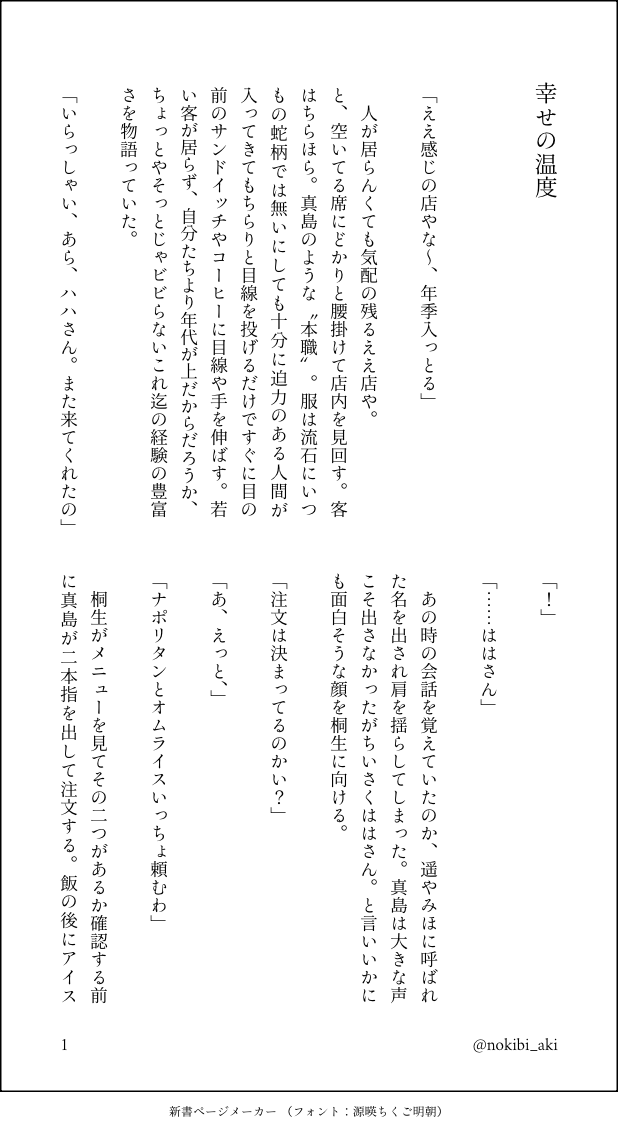 幸せの温度
「ええ感じの店やな〜、年季入っとる」
人が居らんくても気配の残るええ店や。
と、空いてる席にどかりと腰掛けて店内を見回す。客
はちらほら。真島のような〝本職〟。服は流石にいつ
もの蛇柄では無いにしても十分に迫力のある人間が
入ってきてもちらりと目線を投げるだけですぐに目の
前のサンドイッチやコーヒーに目線や手を伸ばす。若
い客が居らず、自分たちより年代が上だからだろうか、
ちょっとやそっとじゃビビらないこれ迄の経験の豊富
さを物語っていた。
「いらっしゃい、あら、ハハさん。また来てくれたの」
「！」
「……ははさん」
あの時の会話を覚えていたのか、遥やみほに呼ばれ
た名を出され肩を揺らしてしまった。真島は大きな声
こそ出さなかったがちいさくははさん。と言いいかに
も面白そうな顔を桐生に向ける。
「注文は決まってるのかい？」
「あ、えっと、」
「ナポリタンとオムライスいっちょ頼むわ」
桐生がメニューを見てその二つがあるか確認する前
に真島が二本指を出して注文する。飯の後にアイス
1
@nokibi_aki
新書ページメーカー （フォント：源暎ちくご明朝）